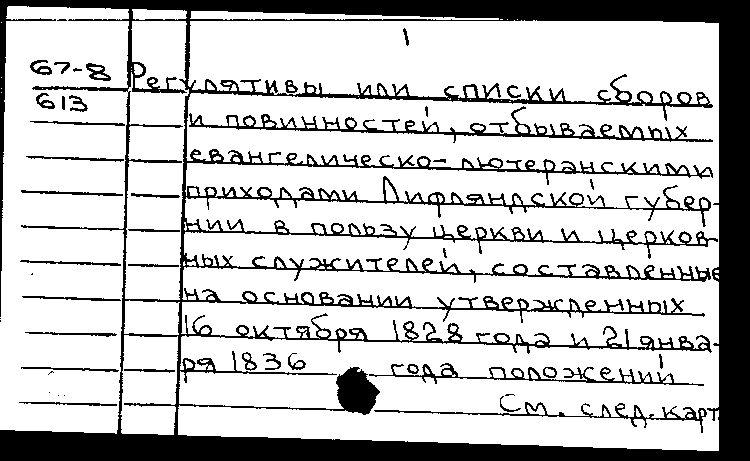 1
67-8 Регулятивы или списки сборов
613
и повинностей, отбываемых
евангелическо-лютеранскими
приходами Лифляндской губер-
нии в пользу церкви и церков-
ных служителей, составленные
на основании утвержденных
16 октября 1828 года и 21 янва-
ря 1836 года положений
См. след. карт